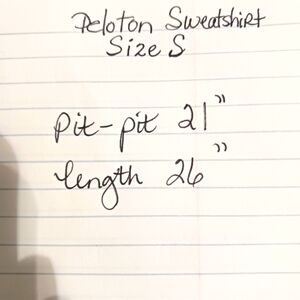 Peloton Sweatshirt
Size S
Pit-pit 21"
length 26"